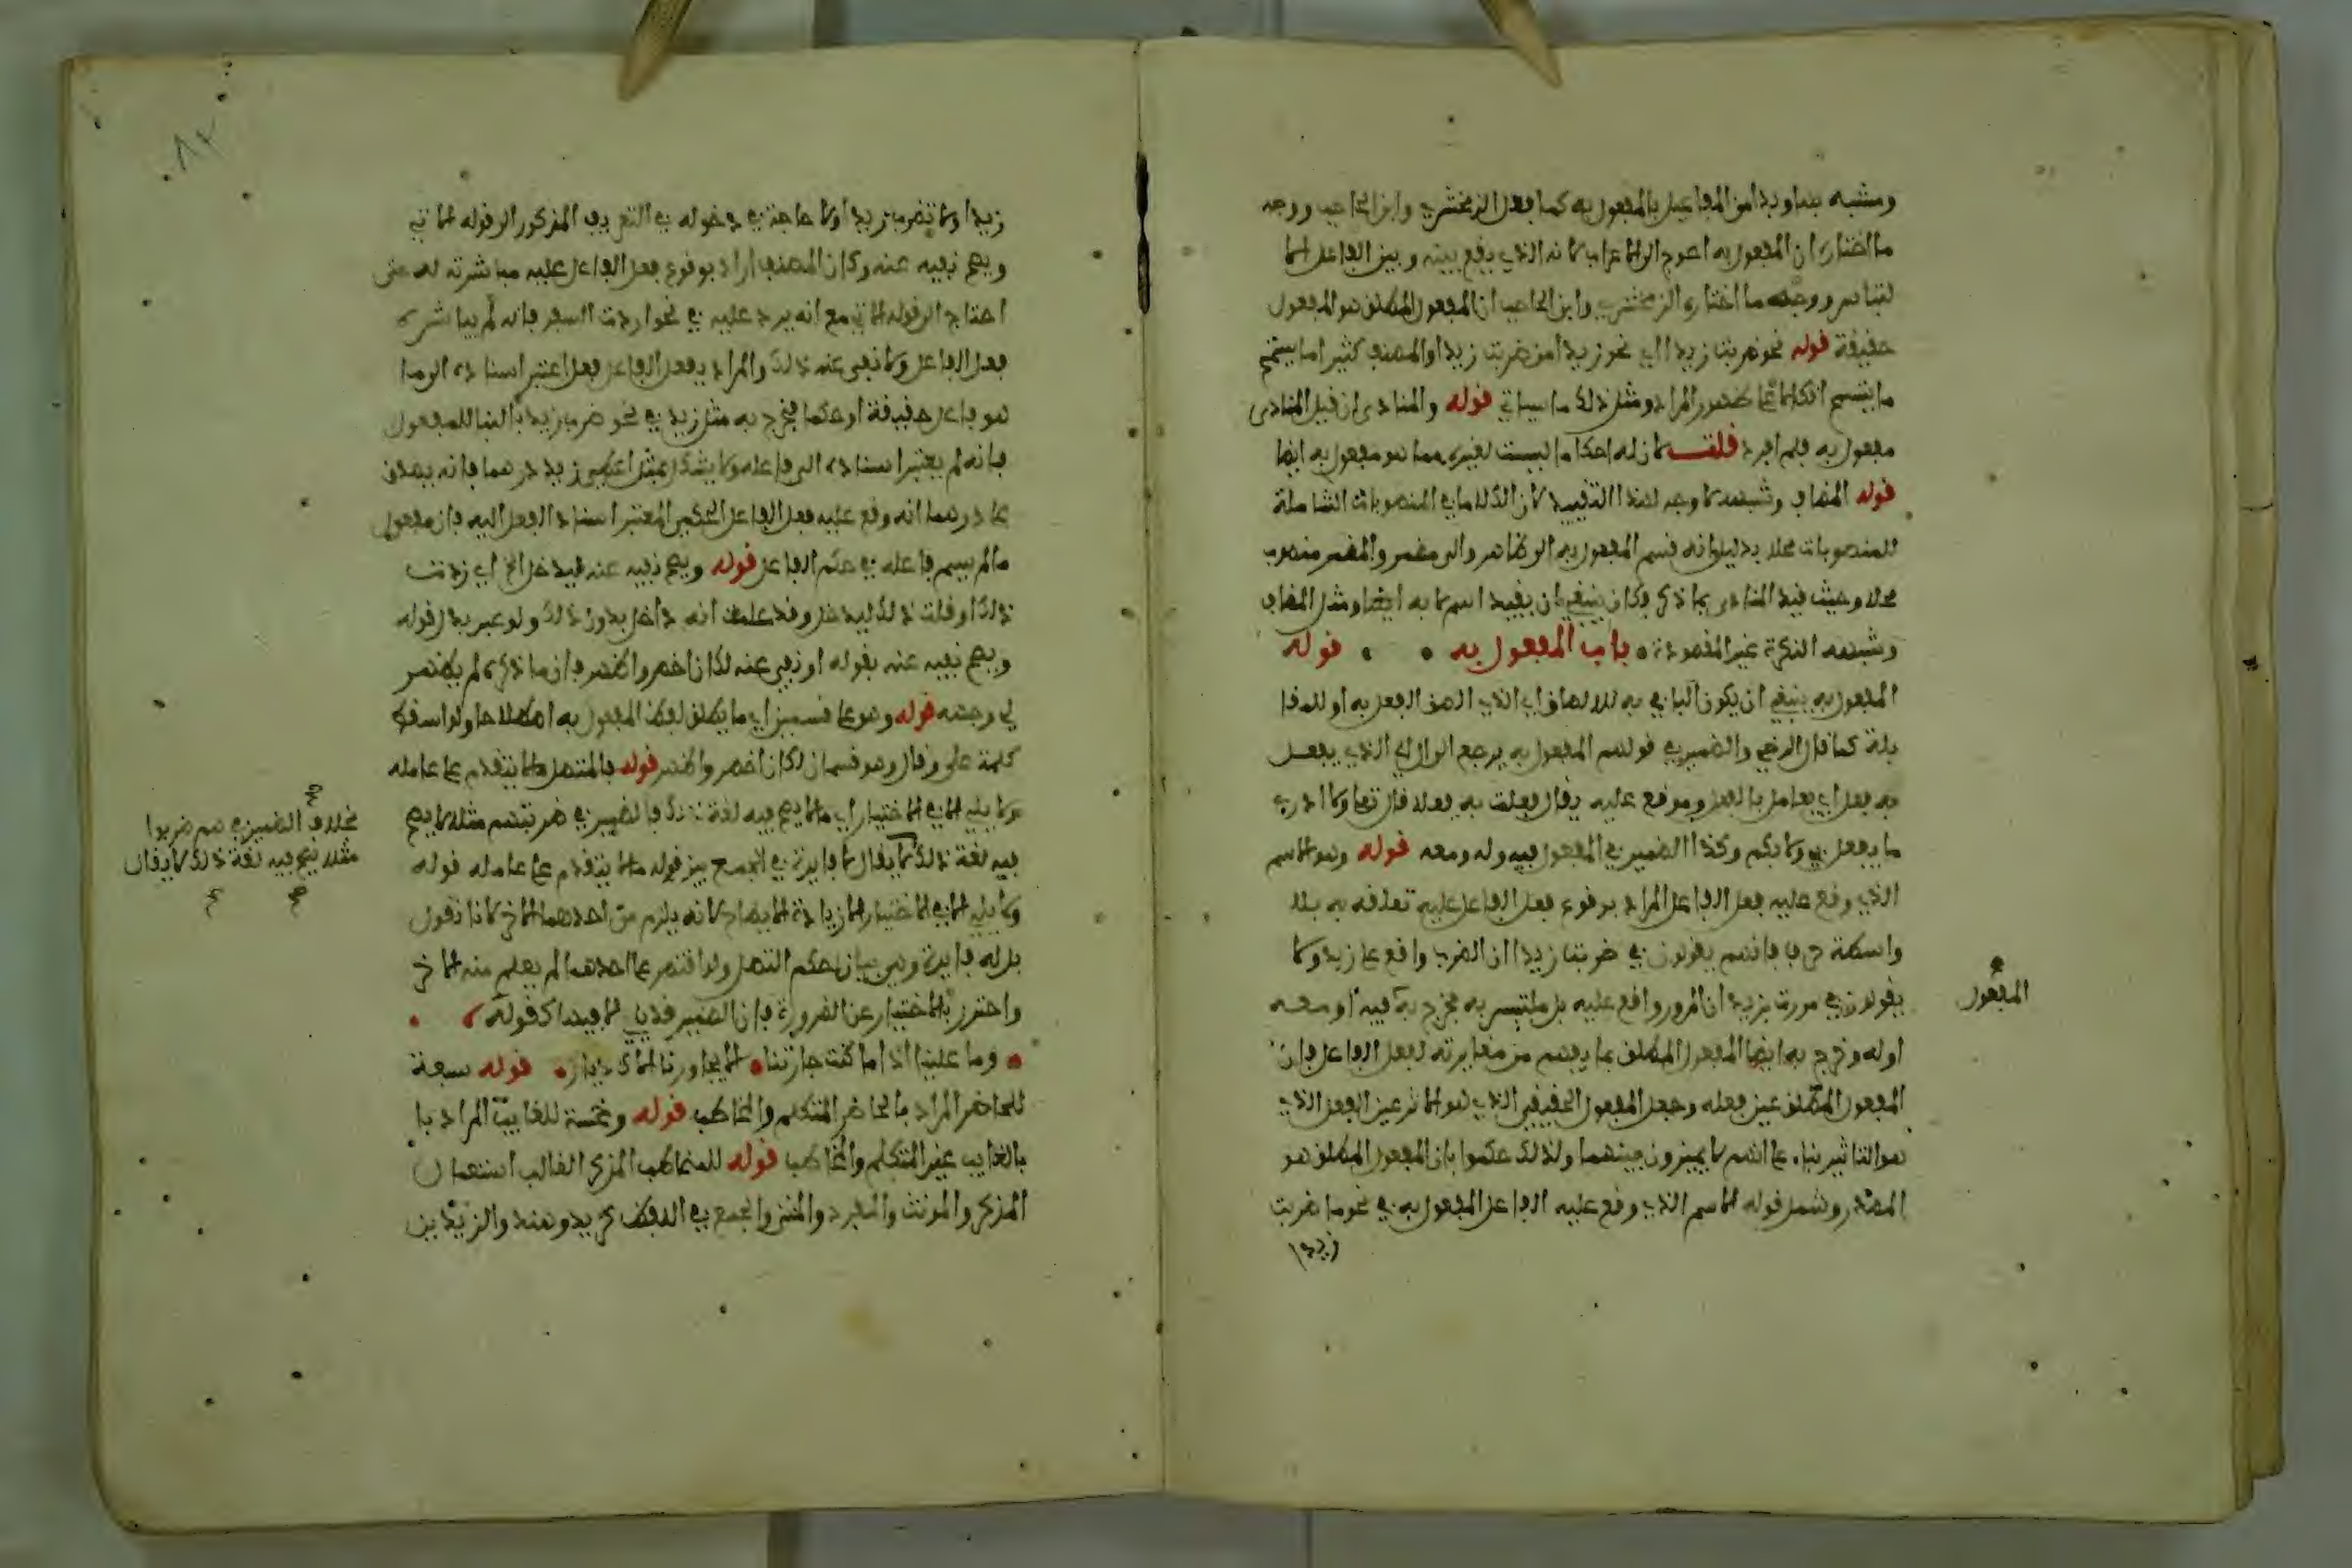 ومشبه بها وبدا من المفاعيل بالمفعول به كما فعل الزمخشري وابن الحاجب ووجه
ما اختاره ان المفعول به احوج الى الاعراب لانه الذي يقع بينه وبين الفاعل الا
لتباس ووجه ما اختاره الزمخشري وابن الحاجب ان المفعول المطلق هو المفعول
حقيقة قوله نحو ضربت زيدا اي نحو زيدا من ضربت زيدا والمصنف كثيرا ما يتسمح
ما يتسمح اتكالا على ظهور المراد ومثل ذلك ما سياتي قوله والمنادى ان قيل المنادى
مفعول به فلم افرد قلت لان له احكاما ليست لغيره مما هو مفعول به ايضا
قوله المضاف وشبهه لا وجه لهذا التقييد لان الكلام في المنصوبات الشاملة
للمنصوبات محلا بدليل انه قسم المفعول به الى ظاهر والى مضمر والمضمر منصوب
محلا وحيث قيد المنادى بما ذكر فكان ينبغي ان يقيد اسم لا به ايضا ومثل المضاف
وشبهه النكرة غير المقصودة باب المفعول به قوله
المفعول به ينبغي ان يكون البا في به للالصاق اي الذي الصق الفعل به او للمقا
بلة كما قال الرضي والضمير في قولهم المفعول به يرجع الى ال اي الذي يفعل
به فعل اي يعامل بالفعل وموقع عليه يقال فعلت به فعلا قال تعا وما ادري
ما يفعل بي ولا بكم وكذا الضمير في المفعول فيه وله ومعه قوله وهو الاسم
الذي وقع عليه فعل الفاعل المراد بوقوع فعل الفاعل عليه تعلقه به بلا
واسطة حرف فانهم يقولون في ضربت زيدا ان الضرب واقع على زيد ولا
يقولون في مررت بزيد ان المرور واقع عليه بل ملتبس به فخرج به فيه او معه
المفعول
او له وخرج به ايضا المفعول المطلق بما يفهم من مغايرته لفعل الفاعل فان
المفعول المطلق عين فعله وجعل المفعول الحقيقي الذي هو الاثر عين الفعل الذي
هو التاثير بناء على انهم لا يميزون بينهما ولذلك حكموا بان المفعول المطلق هو
المصدر وشمل قوله الاسم الذي وقع عليه الفاعل المفعول به في نحو ما ضربت
زيدا
زيدا ولا تضرب زيدا ولا حاجة في دخوله في التعريف المذكور الى قوله الاتي
ويصح نفيه عنه وكان المصنف اراد بوقوع فعل الفاعل عليه مباشرته له حتى
احتاج الى قوله الاتي مع انه يرد عليه في نحو اردت السفر فانه لم يباشره
فعل الفاعل ولا نفي عنه ذلك والمراد بفعل الفاعل فعل اعتبر اسناده الى ما
هو فاعل حقيقة او حكما فخرج به مثل زيد في نحو ضرب زيد بالبنا للمفعول
فانه لم يعتبر اسناده الى فاعله ولا يشكل بمثل اعطي زيد درهما فانه يصدق
على درهما انه وقع عليه فعل الفاعل الحكمي المعتبر اسناد الفعل اليه فان مفعول
ما لم يسم فاعله في حكم الفاعل قوله ويصح نفيه عنه قيد خل الخ اي زدت
ذلك او قلت ذلك ليدخل وقد علمت انه داخل بدون ذلك ولو عبر بدل قوله
ويصح نفيه عنه بقوله او نفي عنه لكان اخصر واظهر فان ما ذكره لم يظهر
لي وجهه قوله وهو على قسمين اي ما يطلق لفظ المفعول به اصطلاحا ولو اسقط
كلمة على وقال وهو قسمان لكان اخصر واظهر قوله فالمتصل ما لا يتقدم على عامله
ولا يلي الا في الاختيار اي ما لا يصح فيه لغة ذلك فالضمير في ضربتهم مثلا لا يصح
بخلاف الضمير في هم ضربوا
مثلا فيصح فيه لغة ذلك لا يقال
صح
فيه لغة ذلك لا يقال لا فايدة في الجمع بين قوله ما لا يتقدم على عامله قوله
ولا يلي الا في الاختيار الا زيادة الايضاح لانه يلزم من احدهما الاخر لانا نقول
بل له فايدة وهي بيان حكم المتصل ولو اقتصر على احدهما لم يعلم منه الاخر
واحترز بالاختيار عن الضرورة فان الضمير قد يلي الا فيها كقوله
وما علينا اذا ما كنت جارتنا الا يجاورنا الاك ديار قوله سبعة
للحاضر المراد بالحاضر المتكلم والمخاطب قوله وخمسة للغايب المراد با
بالغايب غير المتكلم والمخاطب قوله للمخاطب المذكر الغالب استعمال
المذكر والمونث والمفرد والمثنى والجمع في اللفظ كزيد وهند والزيدين